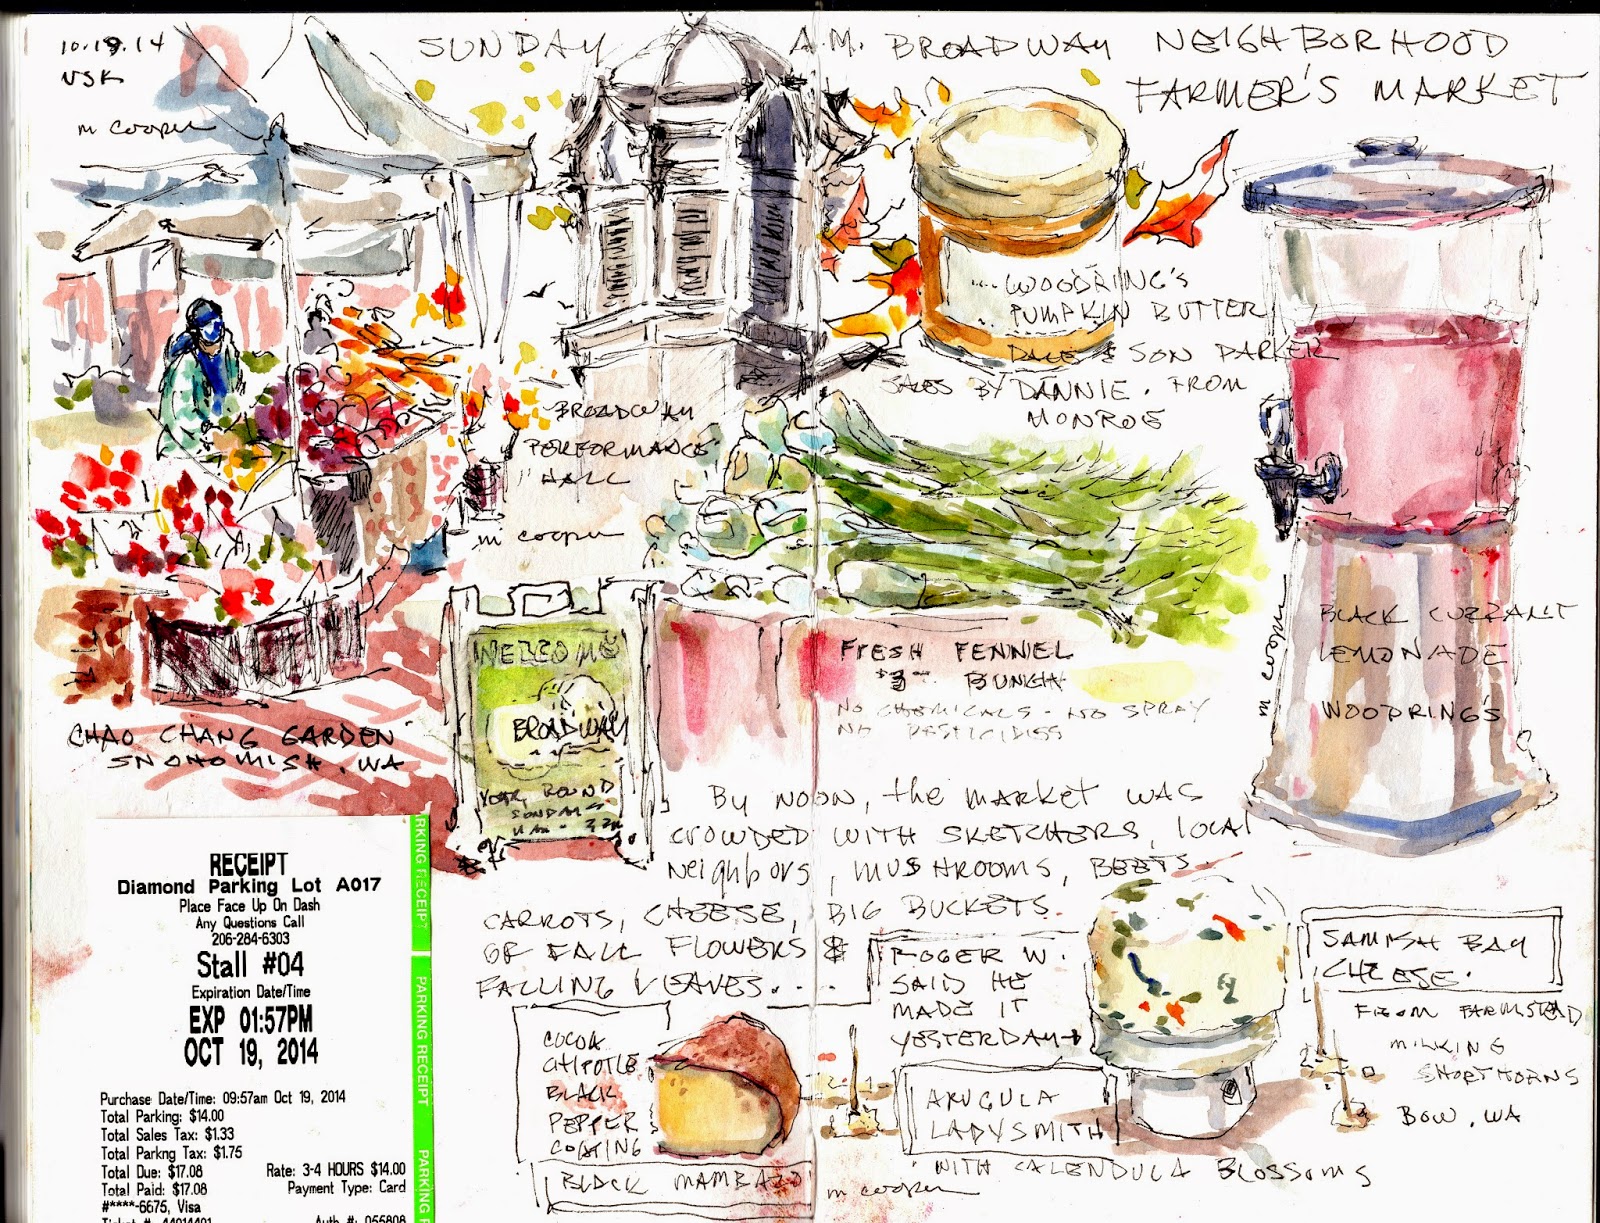 10.19.14
USK
m cooper
SUNDAY A.M. BROADWAY NEIGHBORHOOD
FARMER'S MARKET
WOODRING'S
PUMPKIN BUTTER
DALE & SON PARKER
SALES BY DANNIE. FROM
MONROE
BROADWAY
PERFORMANCE
HALL
m cooper
WELCOME
BROADWAY
YEAR ROUND
SUNDAYS
FRESH FENNEL
$3 BUNCH
NO CHEMICALS - NO SPRAY
NO PESTICIDES
m cooper
BLACK CURRANT
LEMONADE
WOODRING'S
CHAO CHANG GARDEN
SNOHOMISH. WA
By NOON, the MARKET WAS
CROWDED WITH SKETCHERS, local
Neighbors, MUSHROOMS, BEETS.
CARROTS, CHEESE, BIG BUCKETS
OF FALL FLOWERS &
FALLING LEAVES....
ROGER W.
SAID HE
MADE IT
YESTERDAY→
SAMISH BAY
CHEESE.
FROM FARMSTEAD
MILKING
SHORTHORNS
BOW. WA
COCOA
CHIPOTLE
BLACK
PEPPER
COATING
BLACK MAMBAZO
ARUGULA
LADYSMITH
WITH CALENDULA BLOSSOMS
m cooper
RECEIPT
Diamond Parking Lot A017
Place Face Up On Dash
Any Questions Call
206-284-6303
Stall #04
Expiration Date/Time
EXP 01:57PM
OCT 19, 2014
Purchase Date/Time: 09:57am Oct 19, 2014
Total Parking: $14.00
Total Sales Tax: $1.33
Total Parkng Tax: $1.75
Total Due: $17.08 Rate: 3-4 HOURS $14.00
Total Paid: $17.08 Payment Type: Card
#****-6675, Visa
Ticket #: 44014401 Auth #: 055808
RKING RECEIPT
PARKING RECEIPT
PARKING R